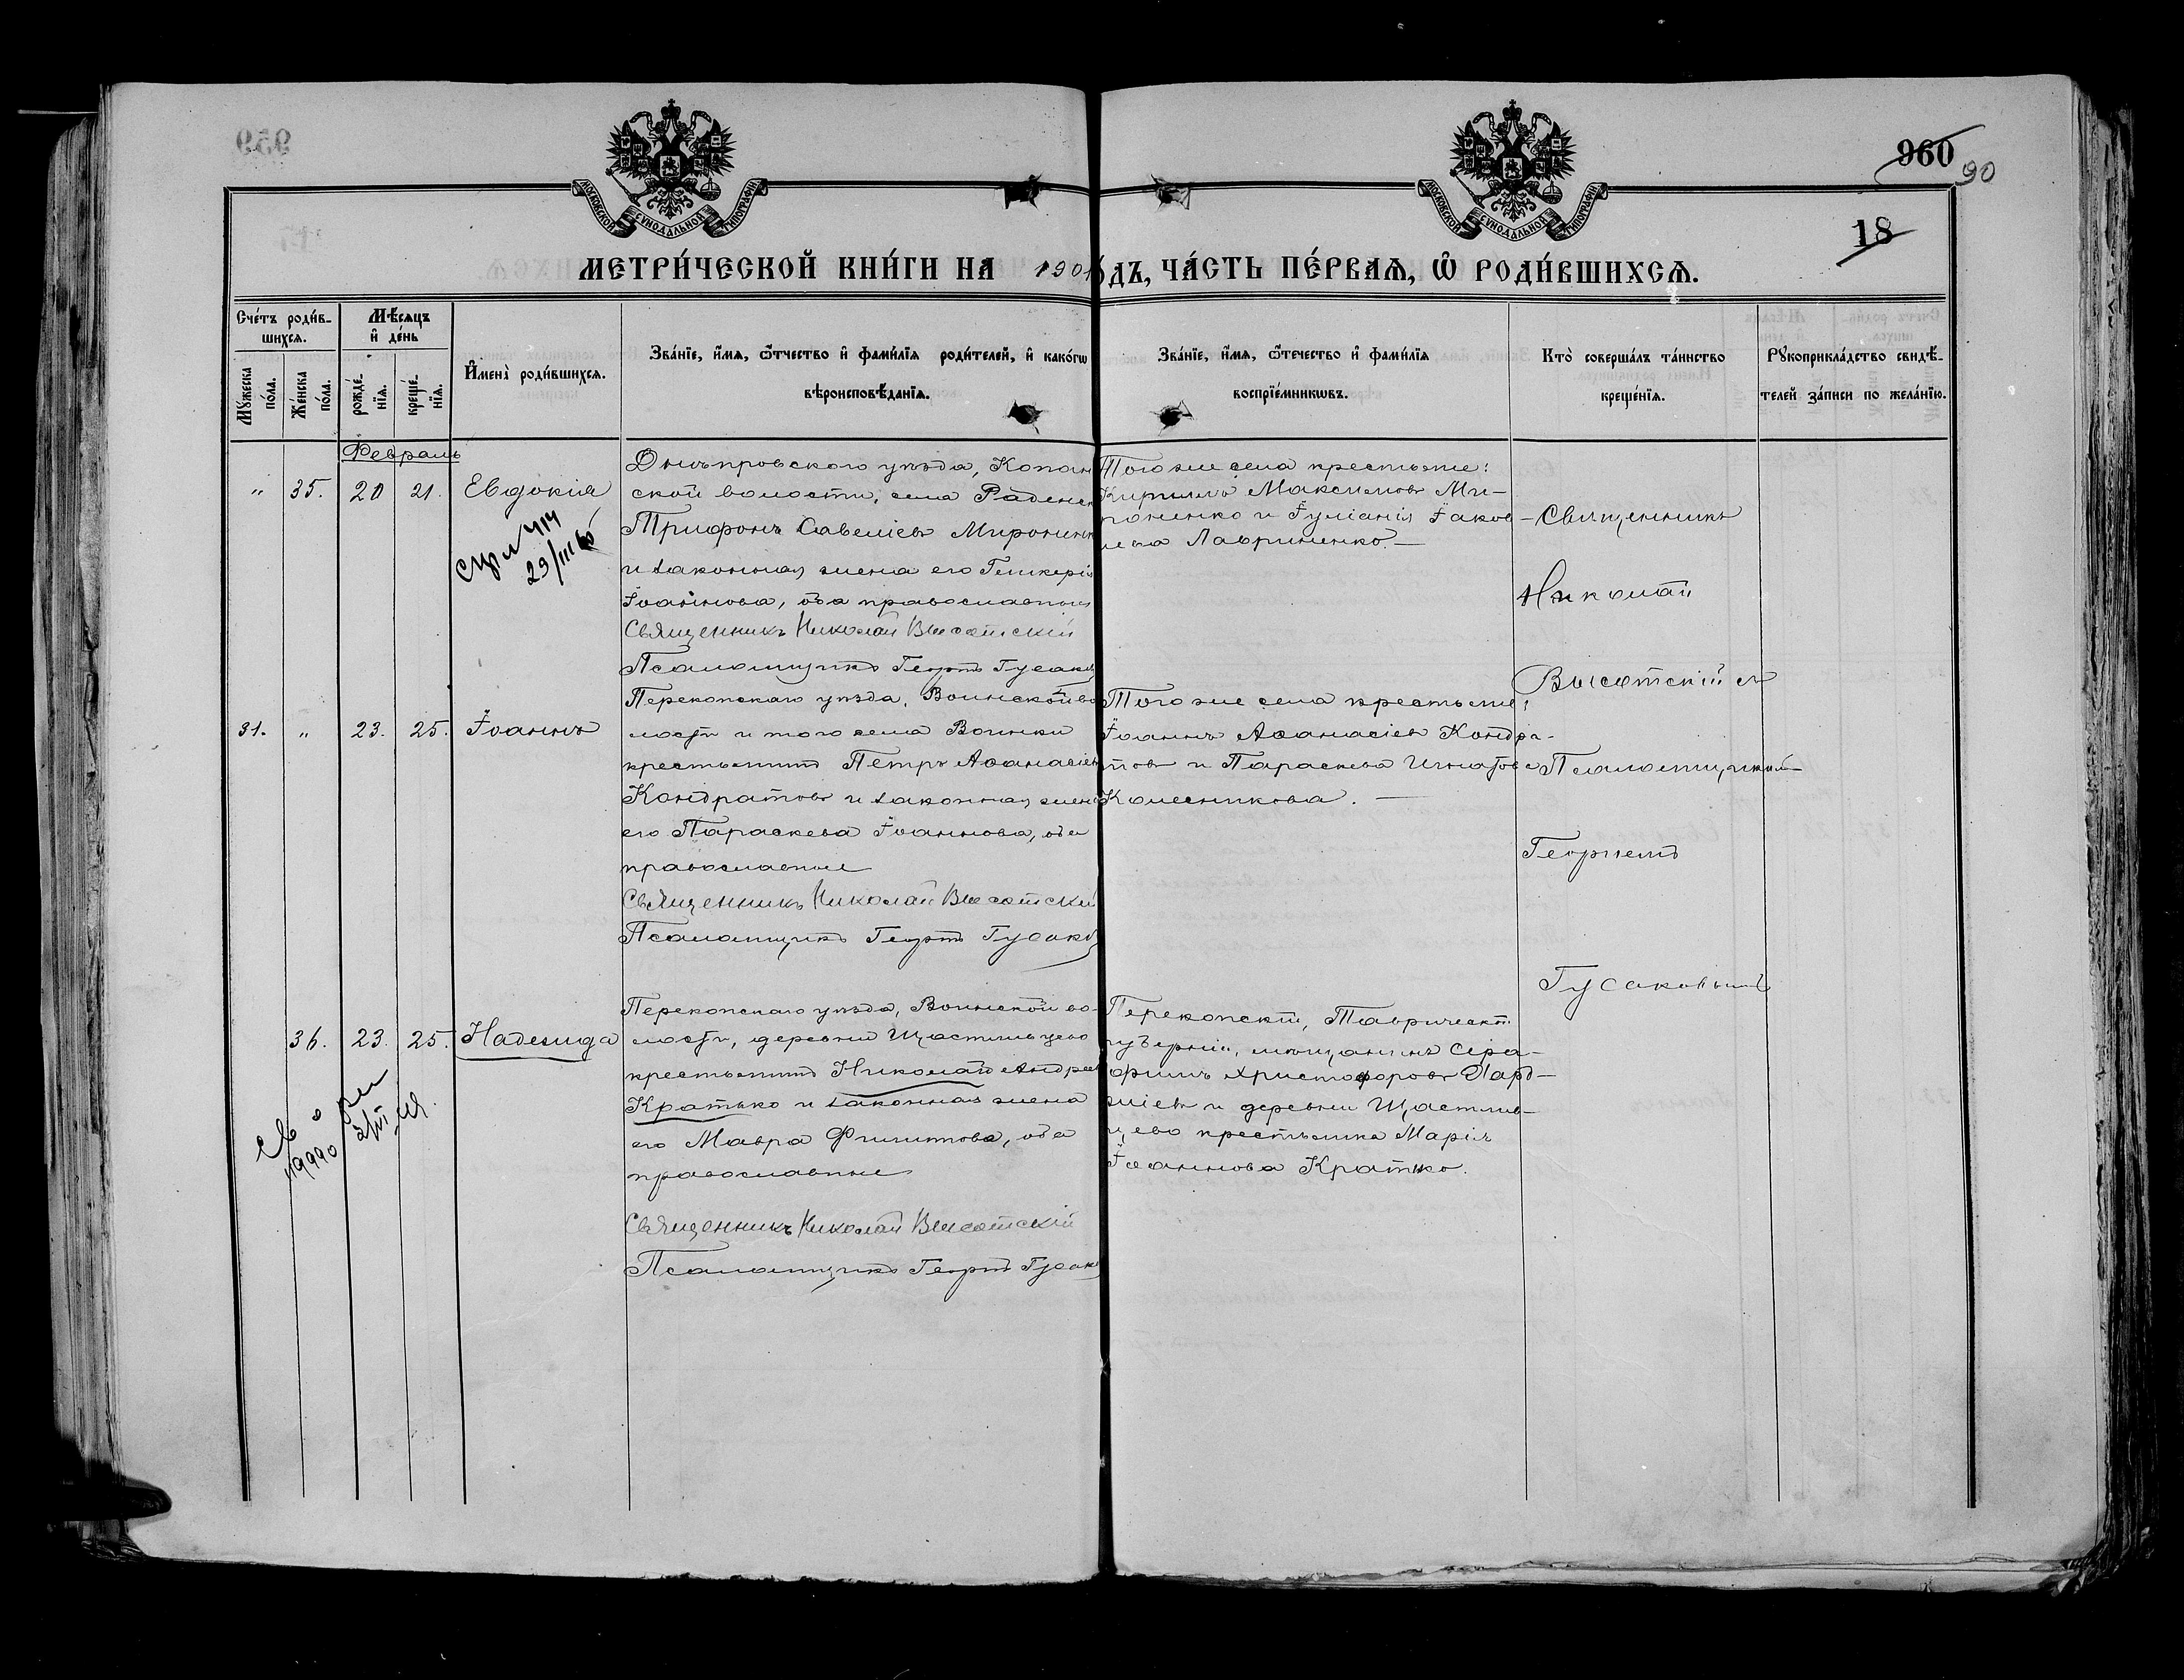 960
90
18
МОСКОВСКОЙ СѴНОДАЛЬНОЙ ТИПОГРАФІИ
МОСКОВСКОЙ СѴНОДАЛЬНОЙ ТИПОГРАФІИ
МЕТРИ́ЧЕСКОЙ КНИ́ГИ НА 1901
О́ДЪ, ЧА́СТЬ ПЕ́РВАѦ, Ѿ РОДИ́ВШИХСѦ.
Сче́тъ роди́в-
шихсѧ.
Мꙋ́жеска по́ла.
Же́нска по́ла.
Мѣ́сѧцъ
и҆ де́нь
рожде́-
нїѧ.
креще́-
нїѧ.
И҆мена̀ роди́вшихсѧ.
Зва́нїе, и҆́мѧ, ѻ҆́тчество и҆ фами́лїѧ роди́телей, и҆ како́гѡ
вѣроисповѣ́данїѧ.
Зва́нїе, и҆́мѧ, ѻ҆те́чество и҆ фами́лїѧ
воспрїе́мникѡвъ.
Кто̀ соверша́лъ та́инство
креще́нїѧ.
Рꙋкоприкла́дство свидѣ́-
телей за́писи по жела́нїю.
Февраль
" 35. 20 21. Евдокія
Днѣпровскаго уѣзда, Копан
ской волости, села Раденск
Трифонъ Савеліевъ Мироненк
и законная жена его Гликерія
Іоаннова, оба православные
Священникъ Николай Высотскій
Псаломщикъ Георгій Гусаковъ
Того же села крестьяне:
Кириллъ Максимовъ Ми-
роненко и Іуліанія Іаков-
лева Лавриненко.—
29/III
31. " 23. 25. Іоаннъ
Перекопскаго уѣзда, Воинской во
лости и того села Воинки
крестьянинъ Петръ Аѳанасіевъ
Кондратовъ и законная жена
его Параскева Іоаннова, оба
православные
Священникъ Николай Высотскій
Псаломщикъ Георгій Гусаковъ
Того же села крестьяне:
Іоаннъ Аѳанасіевъ Кондра-
товъ и Параскева Игнатова
Колесникова.—
36. 23. 25. Надежда
Перекопскаго уѣзда, Воинской во-
лости, деревни Щастливцево
крестьянинъ Николай Андреев
Кратько и законная жена
его Мавра Филиппова, оба
православные
Священникъ Николай Высотскій
Псаломщикъ Георгій Гусаков
Перекопскій, Таврической
губерніи, мѣщанинъ Сера-
фимъ Христофоровъ
и деревни Щастлив-
цево крестьянка Марія
Іоаннова Кратько.
Священникъ
Николай
Высотскій съ
Псаломщикомъ
Георгіемъ
Гусаковымъ